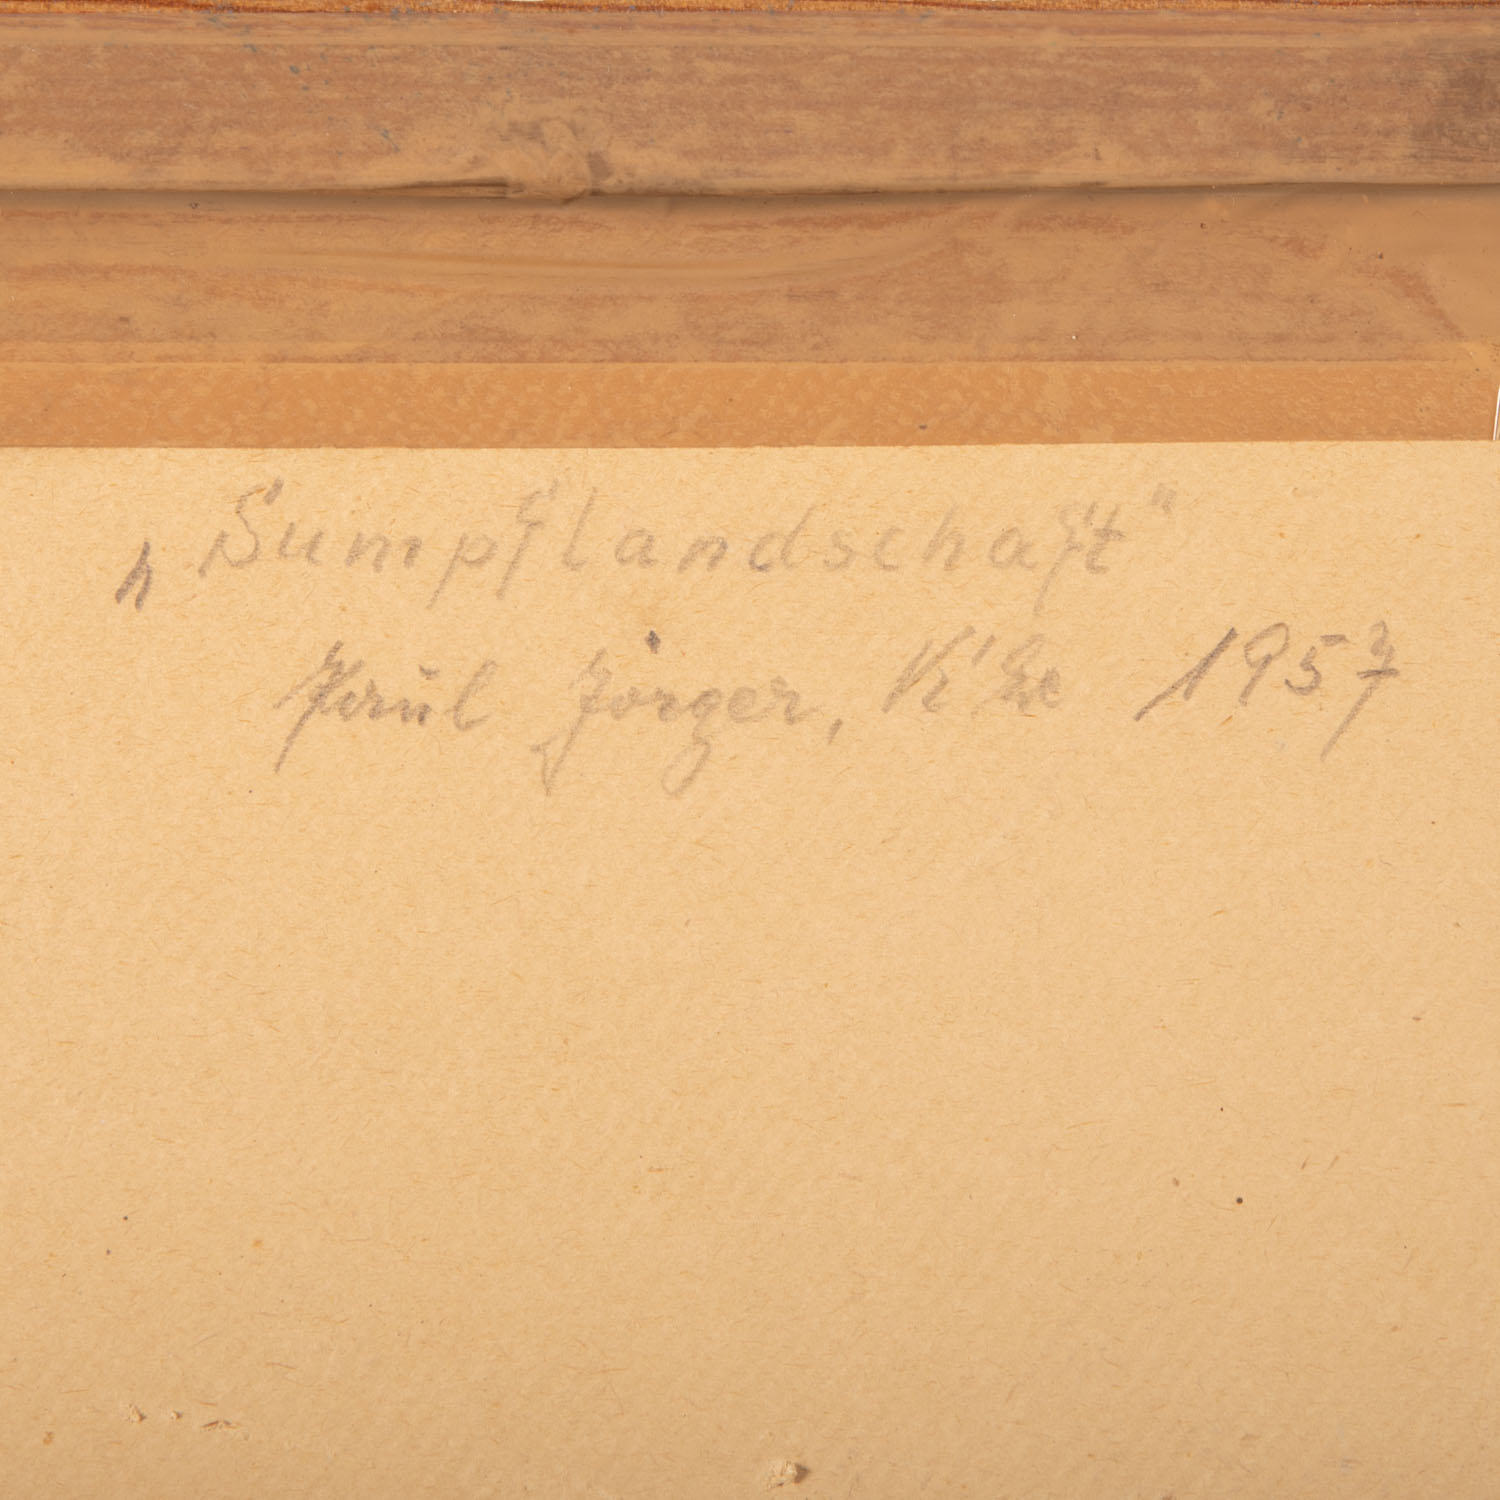 „Sumpflandschaft"
Paul Jörger, K'he 1957